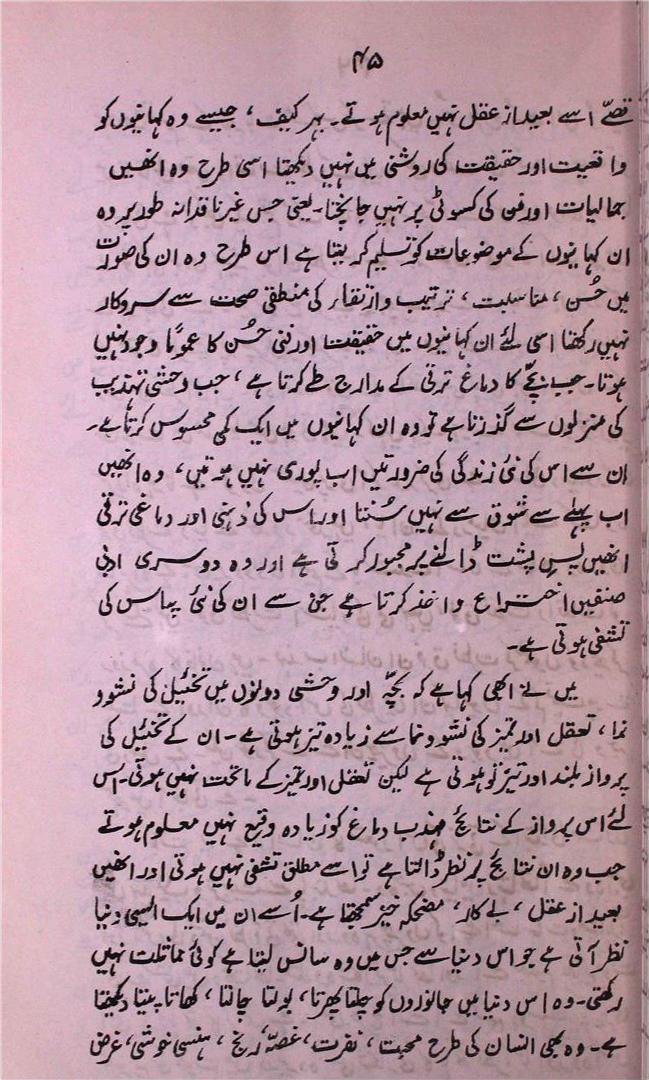 ۴۵
قصّے اسے بعید از عقل نہیں معلوم ہوتے۔ بہر کیف، جیسے وہ کہانیوں کو
واقعیت اور حقیقت کی روشنی میں نہیں دیکھتا اسی طرح وہ انھیں
جمالیات اور فن کی کسوٹی پر نہیں جانچتا۔ یعنی جس غیر ناقدانہ طور پر وہ
ان کہانیوں کے موضوعات کو تسلیم کر لیتا ہے اس طرح وہ ان کی صورت
میں حُسن، مناسبت، ترتیب و ارتقاء کی منطقی صحت سے سروکار
نہیں رکھتا اسی لئے ان کہانیوں میں حقیقت اور فنی حُسن کا عموماً وجود نہیں
ہوتا۔ جب بچّے کا دماغ ترقی کے مدارج طے کرتا ہے، جب وحشی تہذیب
کی منزلوں سے گذرتا ہے تو وہ ان کہانیوں میں ایک کمی محسوس کرتا ہے۔
ان سے اس کی نئی زندگی کی ضرورتیں اب پوری نہیں ہوتیں، وہ انھیں
اب پہلے سے شوق سے نہیں سُنتا اور اس کی ذہنی اور دماغی ترقی
انھیں پسِ پشت ڈالنے پر مجبور کرتی ہے اور وہ دوسری ادبی
صنفیں اختراع و اخذ کرتا ہے جن سے ان کی نئی پیاس کی
تشفی ہوتی ہے۔
میں نے ابھی کہا ہے کہ بچّہ اور وحشی دونوں میں تخئیل کی نشوو
نما، تعقل اور تمیز کی نشوونما سے زیادہ تیز ہوتی ہے۔ ان کے تخئیل کی
پرواز بلند اور تیز تو ہوتی ہے لیکن تعقل اور تمیز کے ماتحت نہیں ہوتی۔ اس
لئے اس پرواز کے نتائج مہذب دماغ کو زیادہ وقیع نہیں معلوم ہوتے
جب وہ ان نتائج پر نظر ڈالتا ہے تو اسے مطلق تشفی نہیں ہوتی اور انھیں
بعید از عقل، بے کار، مضحکہ خیز سمجھتا ہے۔ اُسے ان میں ایک ایسی دنیا
نظر آتی ہے جو اس دنیا سے جس میں وہ سانس لیتا ہے کوئی مماثلت نہیں
رکھتی۔ وہ اس دنیا میں جانوروں کو چلتا پھرتا، بولتا چالتا، کھاتا پیتا دیکھتا
ہے۔ وہ بھی انسان کی طرح محبت، نفرت، غصّہ، رنج، ہنسی خوشی، غرض